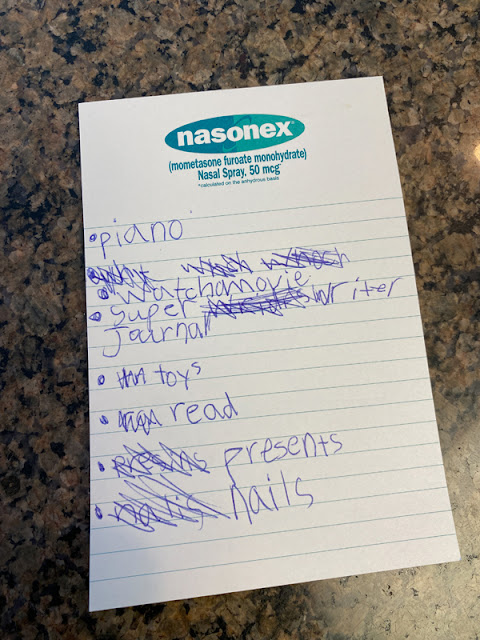 nasonex®
(mometasone furoate monohydrate)
Nasal Spray, 50 mcg*
*calculated on the anhydrous basis
• piano
• watchamovie
• super writer
journal
• toys
• read
• presents
• nails